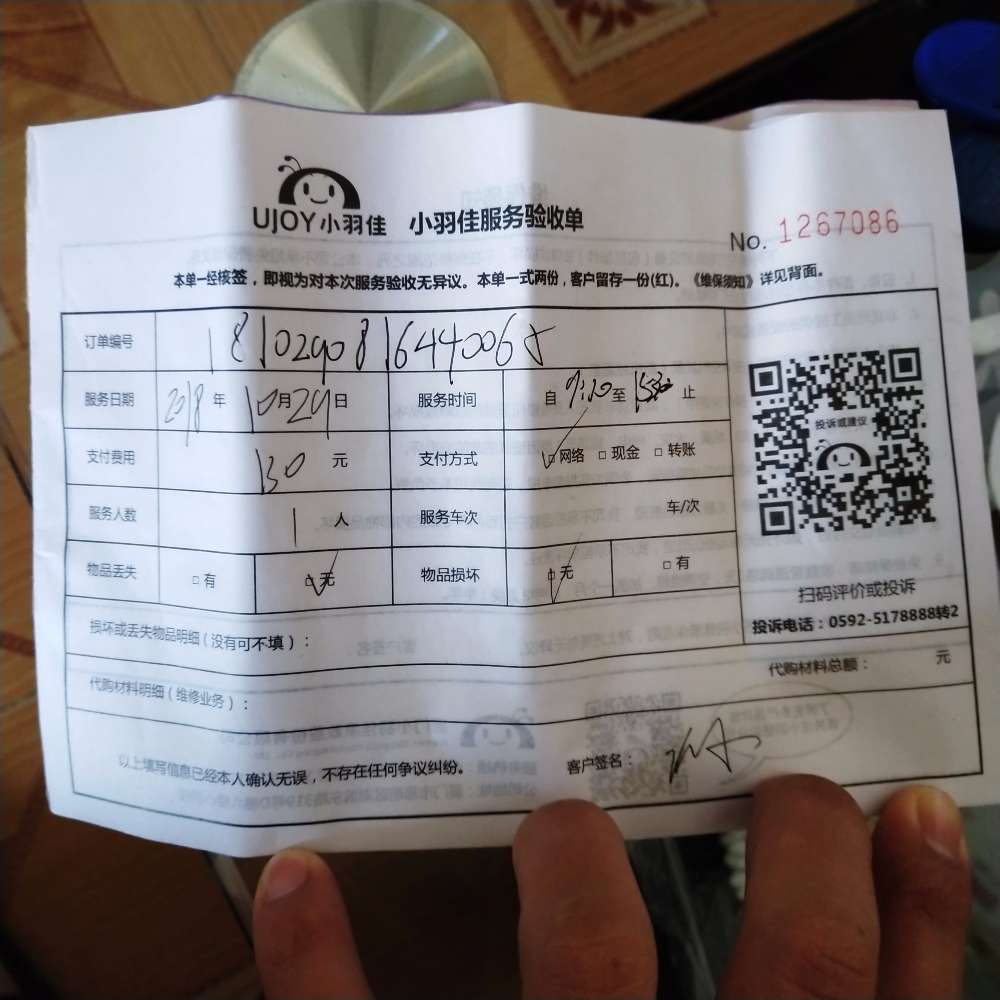 UJOY小羽佳 小羽佳服务验收单
No. 1267086
本单一经核签，即视为对本次服务验收无异议。本单一式两份，客户留存一份(红)。《维保须知》详见背面。
订单编号 18102908164400068
服务日期 2018年10月29日 服务时间 自9:10至 止
支付费用 130元 支付方式 □网络 □现金 □转账
服务人数 1人 服务车次 车/次
物品丢失 □有 □无 物品损坏 □无 □有
投诉或建议
扫码评价或投诉
投诉电话：0592-5178888转2
损坏或丢失物品明细(没有可不填)：
代购材料明细(维修业务)： 代购材料总额： 元
以上填写信息已经本人确认无误，不存在任何争议纠纷。 客户签名：